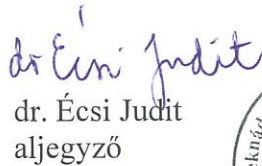 dr Écsi Judit
dr. Écsi Judit
aljegyző